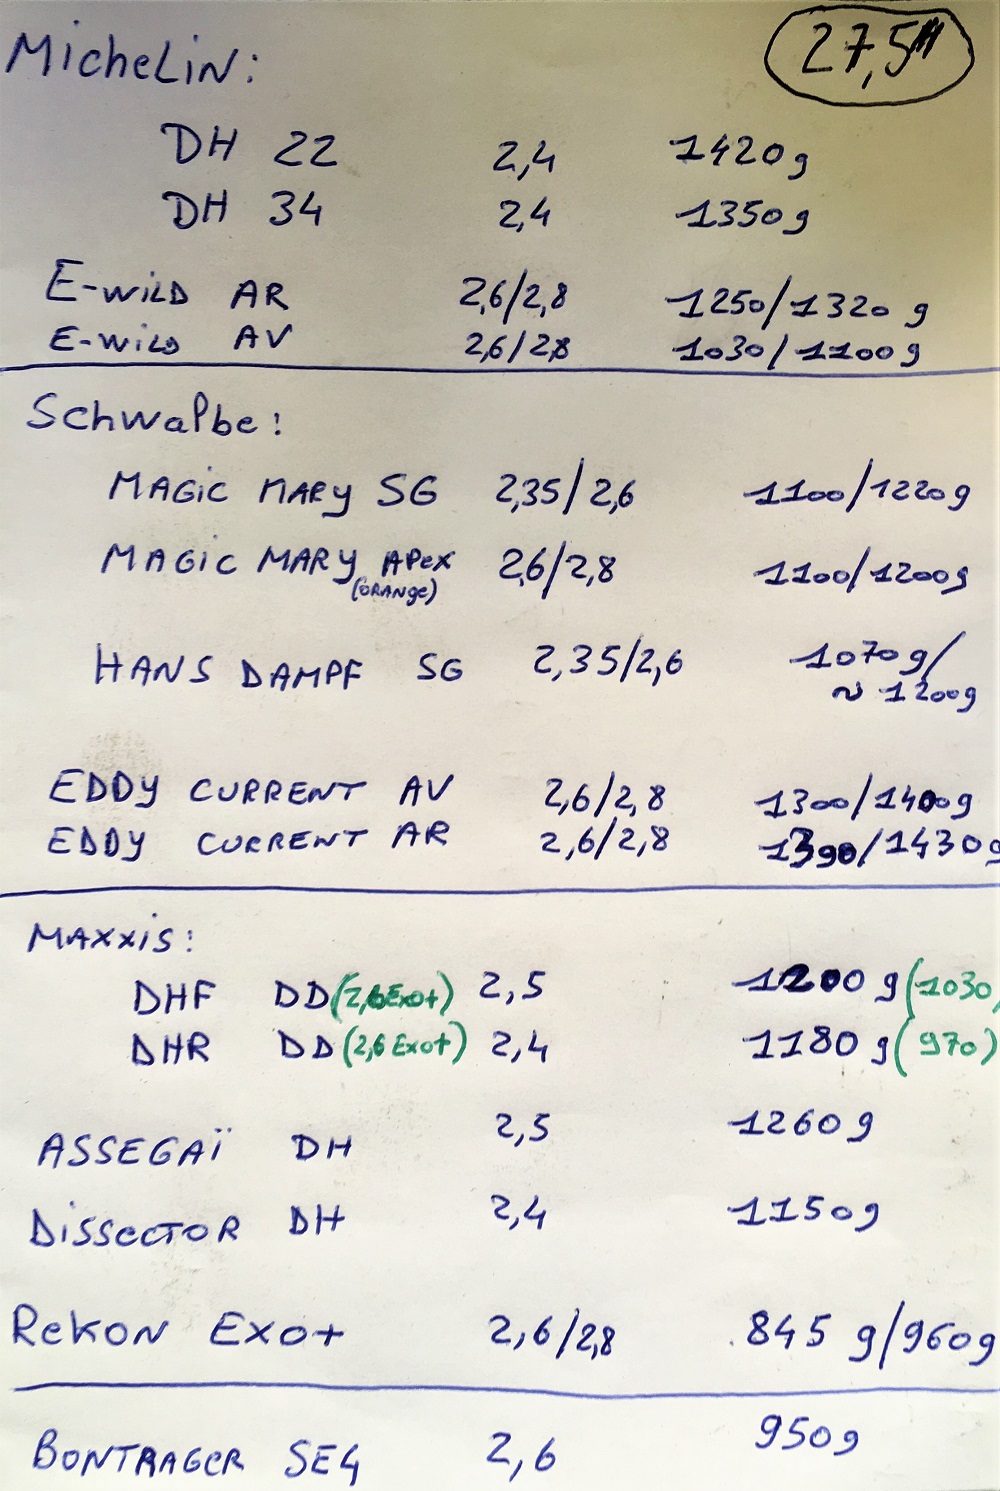 Michelin: 27,5"
DH 22 2,4 1420g
DH 34 2,4 1350g
E-wiLD AR 2,6/2,8 1250/1320 g
E-wiLD AV 2,6/2,8 1030/1100g
Schwalbe:
MAGiC MARY SG 2,35/2,6 1100/1220g
MAGiC MARY APex 2,6/2,8 1100/1200g
(ORANGe)
HANS DAMPF SG 2,35/2,6 1070g/
~ 1200g
EDDY CURRENT AV 2,6/2,8 1300/1400g
EDDY CURRENT AR 2,6/2,8 1390/1430g
MAXXiS:
DHF DD(2,6 Exo+) 2,5 1200 g(1030)
DHR DD(2,6 Exo+) 2,4 1180 g(970)
ASSEGAÏ DH 2,5 1260g
DiSSecTOR DH 2,4 1150g
ReKON Exo+ 2,6/2,8 845 g/960g
BONTRAGeR SE4 2,6 950g